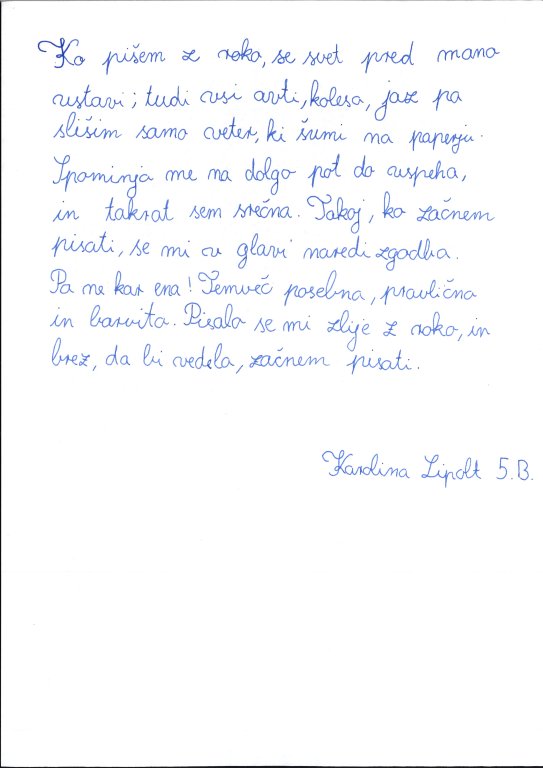 Ko pišem z roko, se svet pred mano
ustavi; tudi vsi avti, kolesa, jaz pa
slišim samo veter, ki šumi na paperju.
Spominja me na dolgo pot do uspeha,
in takrat sem srečna. Takoj, ko začnem
pisati, se mi v glavi naredi zgodba.
Pa ne kar ena! Temveč posebna, pravlična
in barvita. Pisalo se mi zlije z roko, in
brez, da bi vedela, začnem pisati.
Karolina Lipolt 5.B.